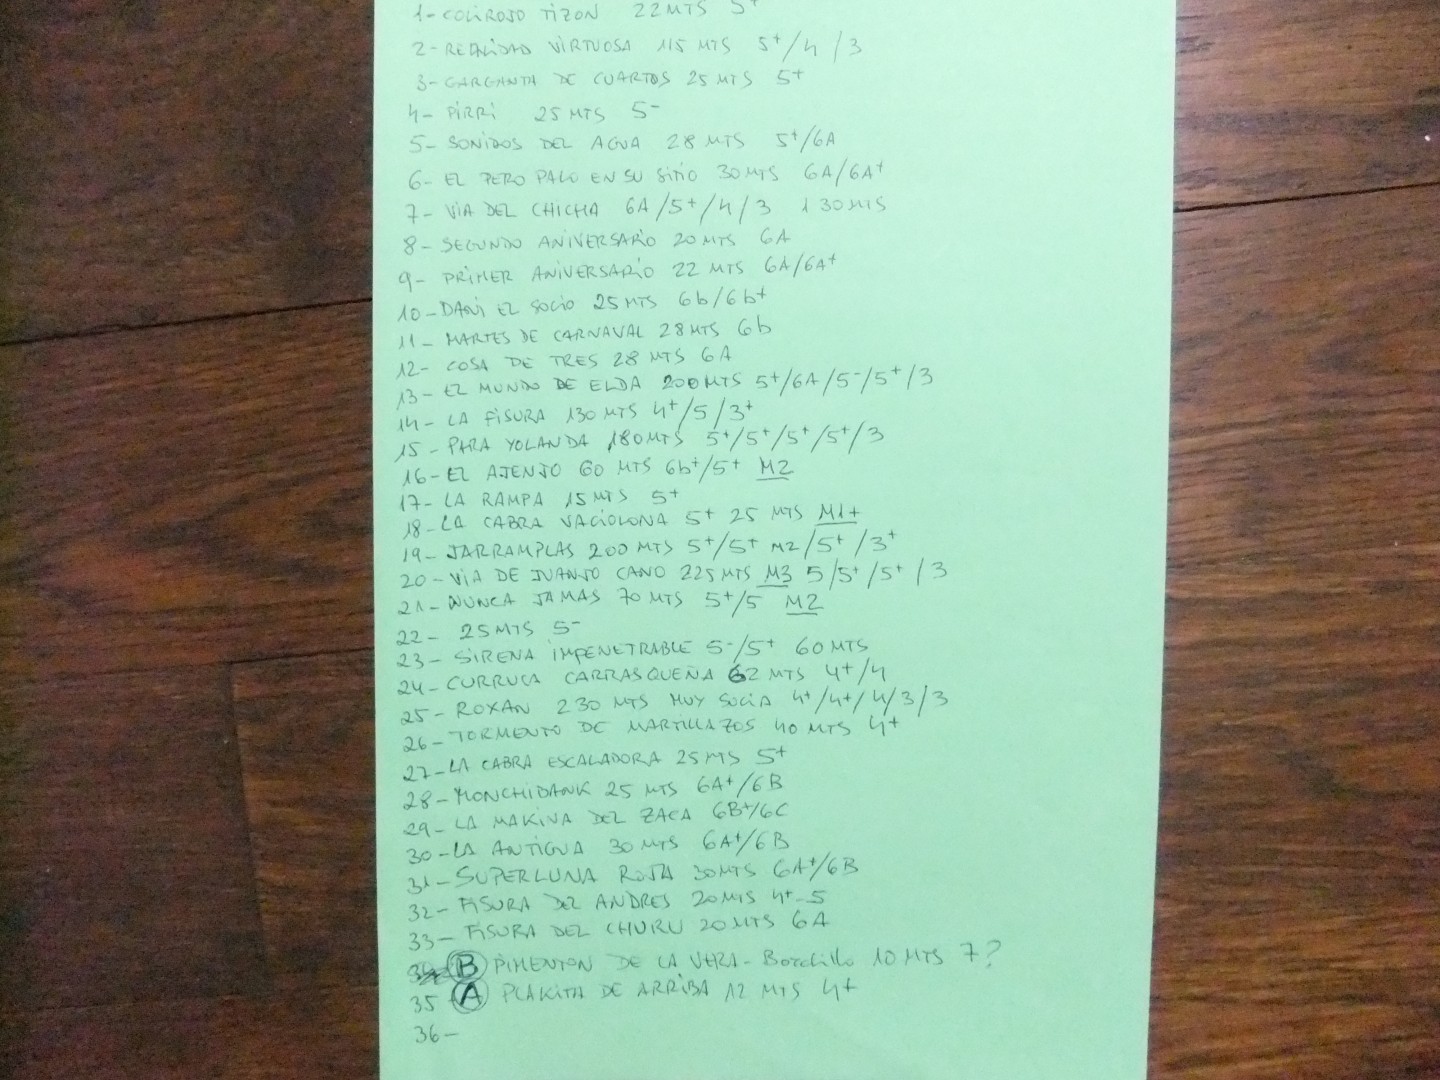 1- COLIROJO TIZON 22 MTS 5+
2- REALIDAD VIRTUOSA 115 MTS 5+/4/3
3- GARGANTA DE CUARTOS 25 MTS 5+
4- PIRRI 25 MTS 5-
5- SONIDOS DEL AGUA 28 MTS 5+/6A
6- EL PERO PALO EN SU SITIO 30 MTS 6A/6A+
7- VIA DEL CHICHA 6A/5+/4/3 130 MTS
8- SEGUNDO ANIVERSARIO 20 MTS 6A
9- PRIMER ANIVERSARIO 22 MTS 6A/6A+
10- DANI EL SOCIO 25 MTS 6b/6b+
11- MARTES DE CARNAVAL 28 MTS 6b
12- COSA DE TRES 28 MTS 6A
13- EL MUNDO DE ELDA 200 MTS 5+/6A/5-/5+/3
14- LA FISURA 130 MTS 4+/5/3+
15- PARA YOLANDA 180 MTS 5+/5+/5+/5+/3
16- EL AJENJO 60 MTS 6b+/5+ M2
17- LA RAMPA 15 MTS 5+
18- LA CABRA VACILONA 5+ 25 MTS M1+
19- JARRAMPLAS 200 MTS 5+/5+ M2/5+/3+
20- VIA DE JUANJO CANO 225 MTS M3 5/5+/5+/3
21- NUNCA JAMAS 70 MTS 5+/5 M2
22- 25 MTS 5-
23- SIRENA IMPENETRABLE 5-/5+ 60 MTS
24- CURRUCA CARRASQUEÑA 62 MTS 4+/4
25- ROXAN 230 MTS MUY SUCIA 4+/4+/4/3/3
26- TORMENTO DE MARTILLAZOS 40 MTS 4+
27- LA CABRA ESCALADORA 25 MTS 5+
28- MONCHIBANK 25 MTS 6A+/6B
29- LA MAKINA DEL ZACA 6B+/6C
30- LA ANTIGUA 30 MTS 6A+/6B
31- SUPERLUNA ROJA 30 MTS 6A+/6B
32- FISURA DEL ANDRES 20 MTS 4+-5
33- FISURA DEL CHURU 20 MTS 6A
B PIMENTON DE LA VERA - 10 MTS 7?
35 A PLAKITA DE ARRIBA 12 MTS 4+
36-